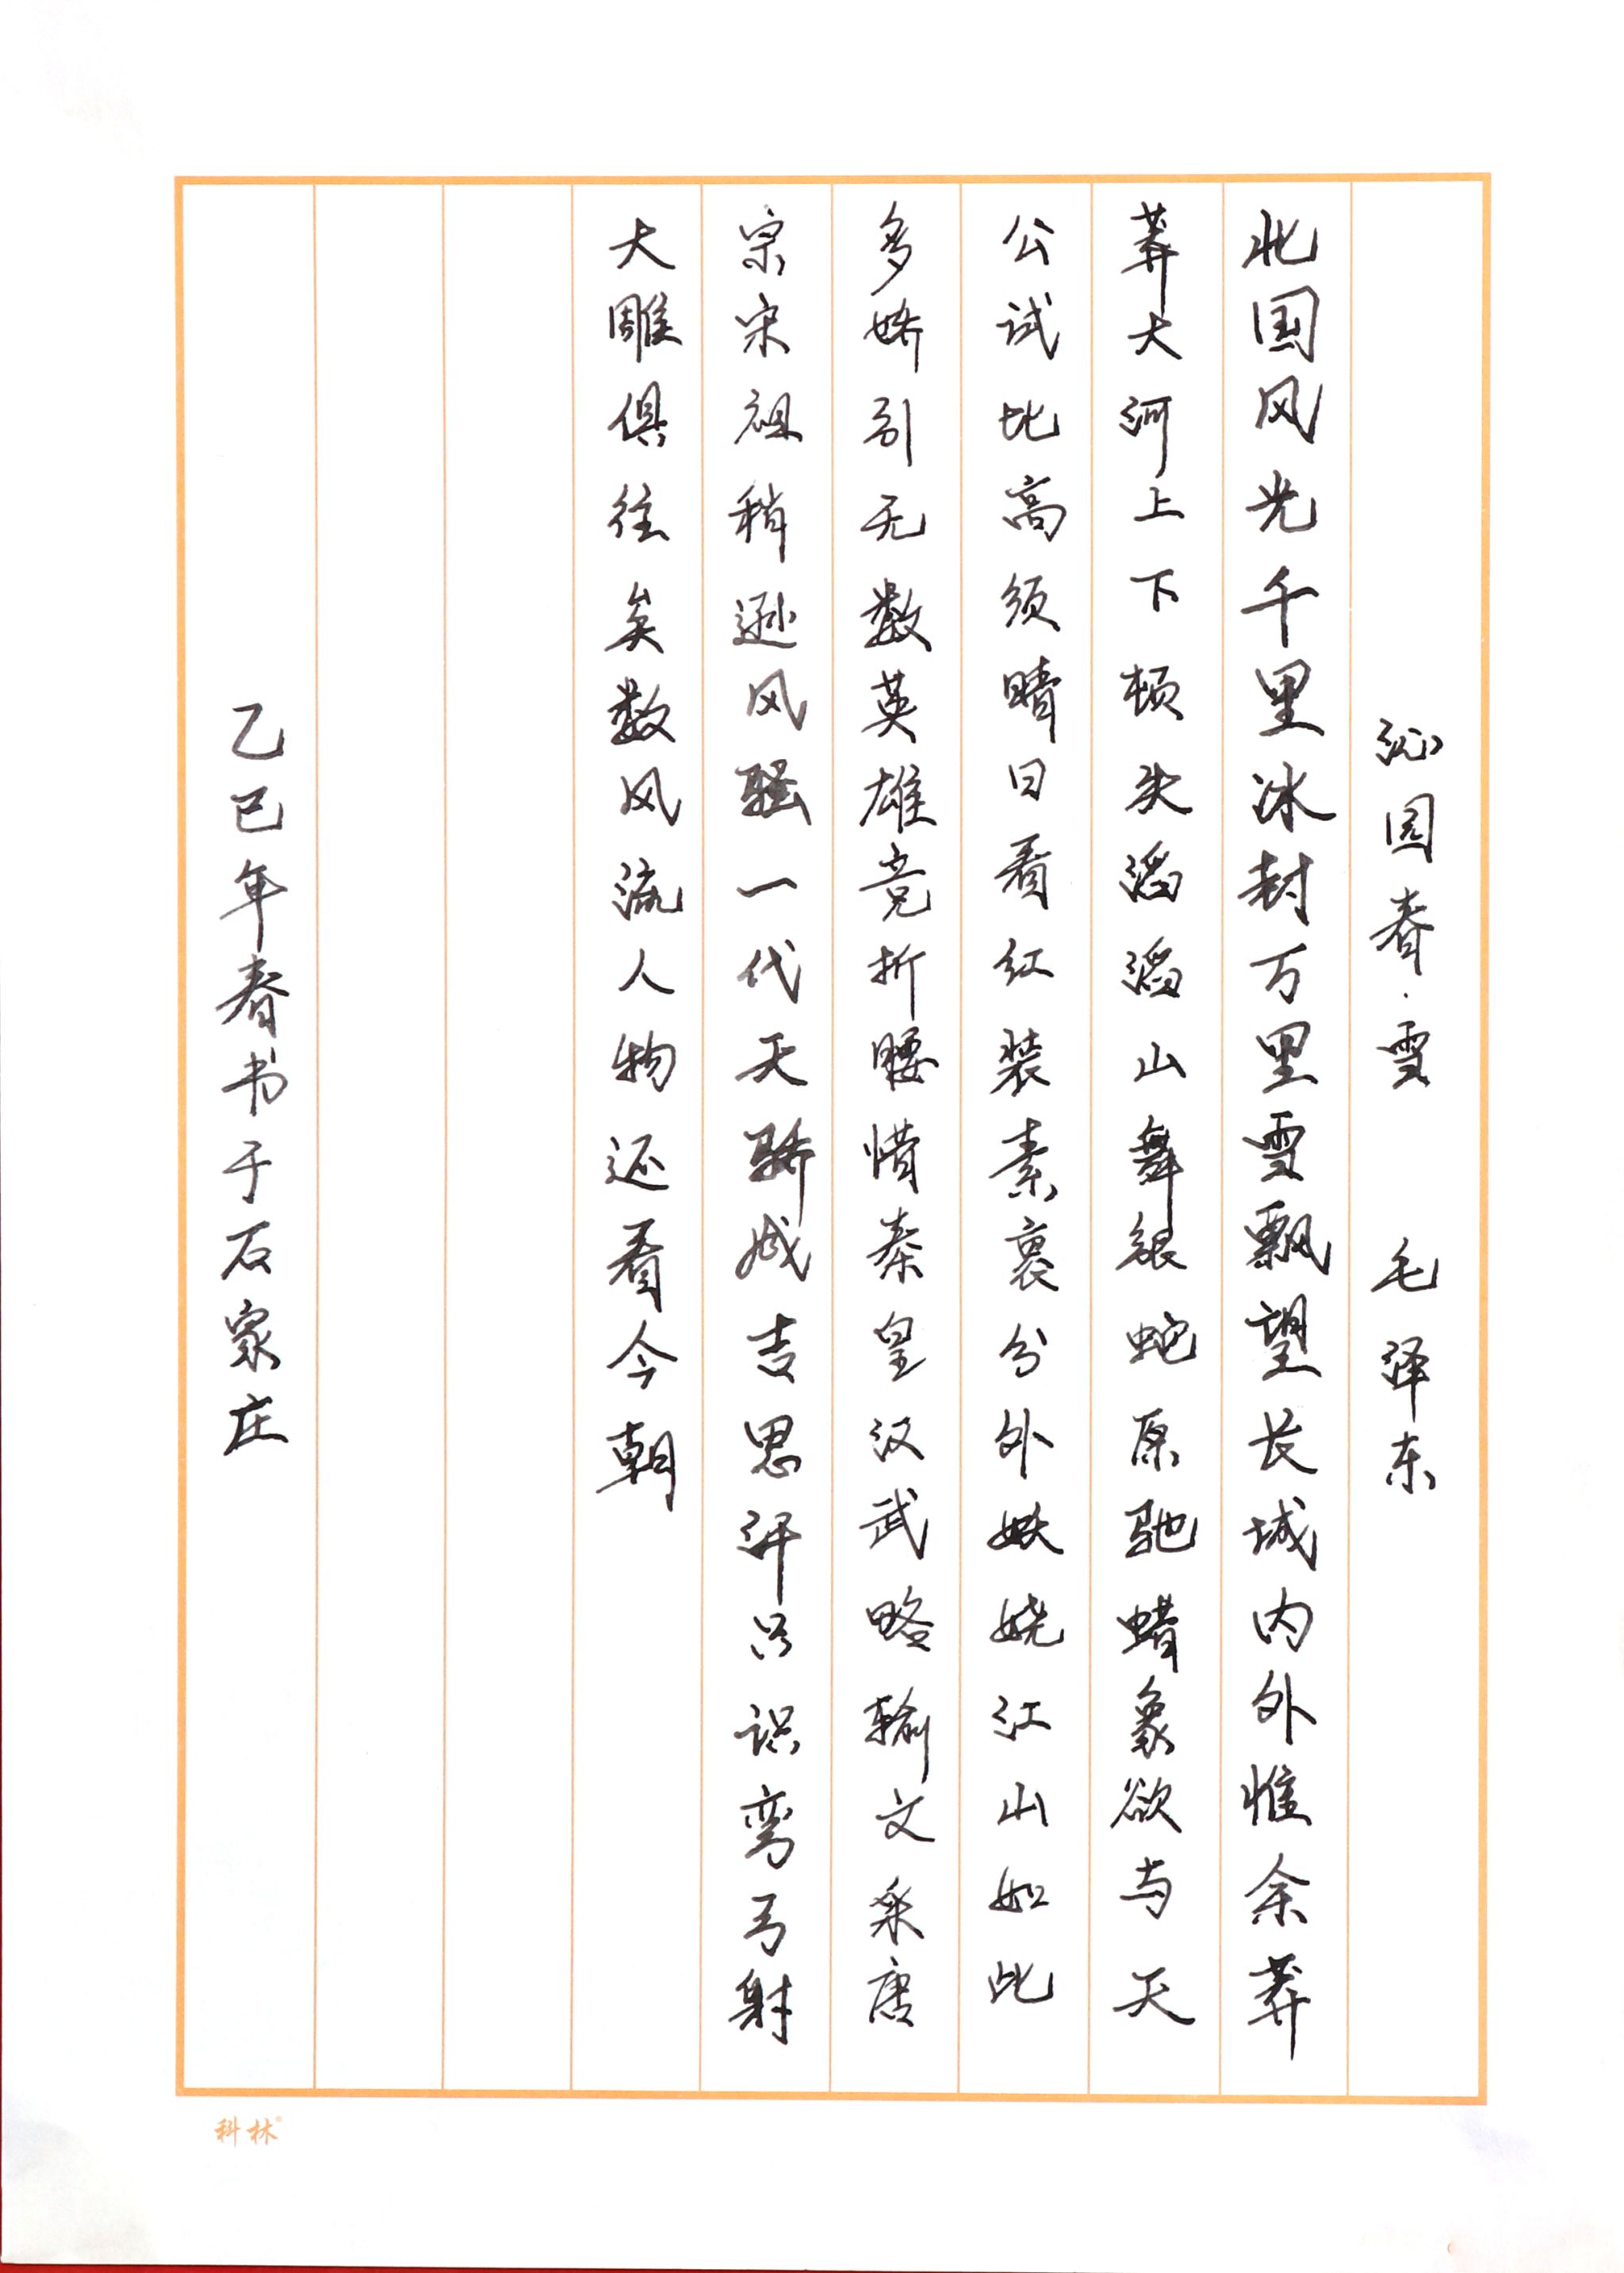 沁园春·雪 毛泽东
北国风光千里冰封万里雪飘望长城内外惟余莽
莽大河上下顿失滔滔山舞银蛇原驰蜡象欲与天
公试比高须晴日看红装素裹分外妖娆江山如此
多娇引无数英雄竞折腰惜秦皇汉武略输文采唐
宗宋祖稍逊风骚一代天骄成吉思汗只识弯弓射
大雕俱往矣数风流人物还看今朝
乙巳年春书于石家庄
科林